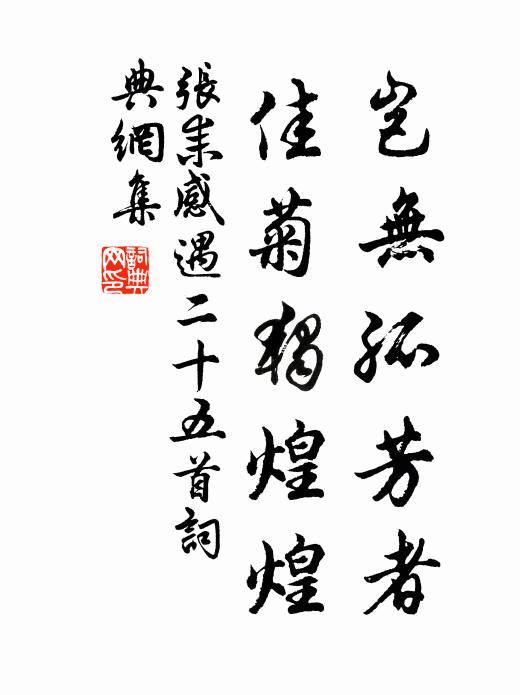 豈無孤芳者
佳菊獨煌煌
張耒感遇二十五首詞
典網集
詞典網印